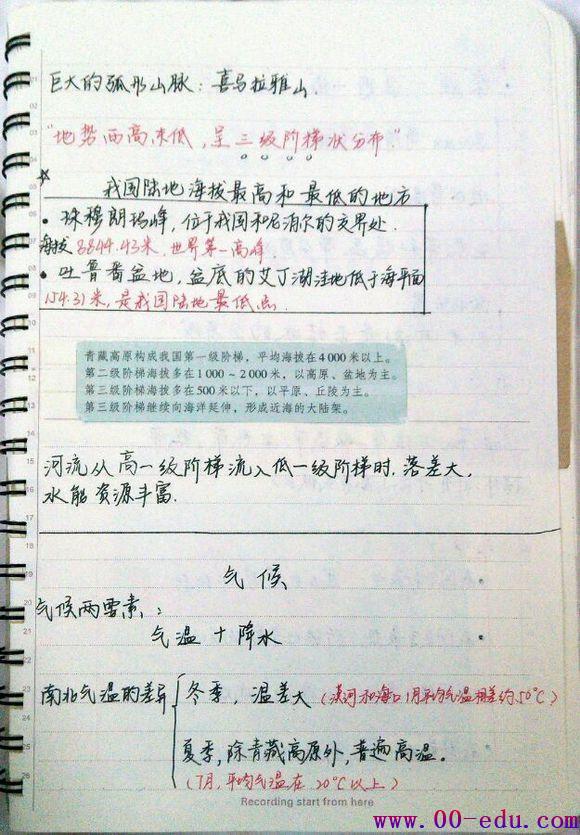 巨大的弧形山脉：喜马拉雅山
"地势西高东低，呈三级阶梯状分布"
我国陆地海拔最高和最低的地方
• 珠穆朗玛峰，位于我国和尼泊尔的交界处.
海拔8844.43米，世界第一高峰
• 吐鲁番盆地，盆底的艾丁湖洼地低于海平面
154.31米，是我国陆地最低点.
青藏高原构成我国第一级阶梯，平均海拔在4 000米以上。
第二级阶梯海拔多在1 000～2 000米，以高原、盆地为主。
第三级阶梯海拔多在500米以下，以平原、丘陵为主。
第三级阶梯继续向海洋延伸，形成近海的大陆架。
河流从高一级阶梯流入低一级阶梯时，落差大，
水能资源丰富.
气候
气候两要素：
气温＋降水
南北气温的差异 冬季，温差大（漠河和海口1月平均气温相差约50℃）
夏季，除青藏高原外，普遍高温.
（7月，平均气温在20℃以上）
Recording start from here
www.00-edu.com